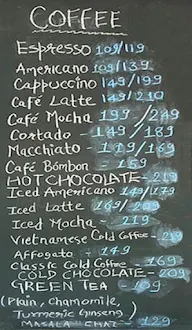 COFFEE
Espresso 109/119
Americano 109/139
Cappuccino 149/199
Café Latte 149/210
Café Mocha 199/249
Cortado - 149/189
Macchiato - 119/169
Café Bómbon - 159
HOT CHOCOLATE - 219
Iced Americano 149/179
Iced Latte 169/209
Iced Mocha - 219
Vietnamese Cold Coffee - 219
Affogato - 149
Classic Cold Coffee - 169
COLD CHOCOLATE - 209
GREEN TEA - 109
(Plain, Chamomile,
Turmeric Ginseng)
MASALA CHAI - 129